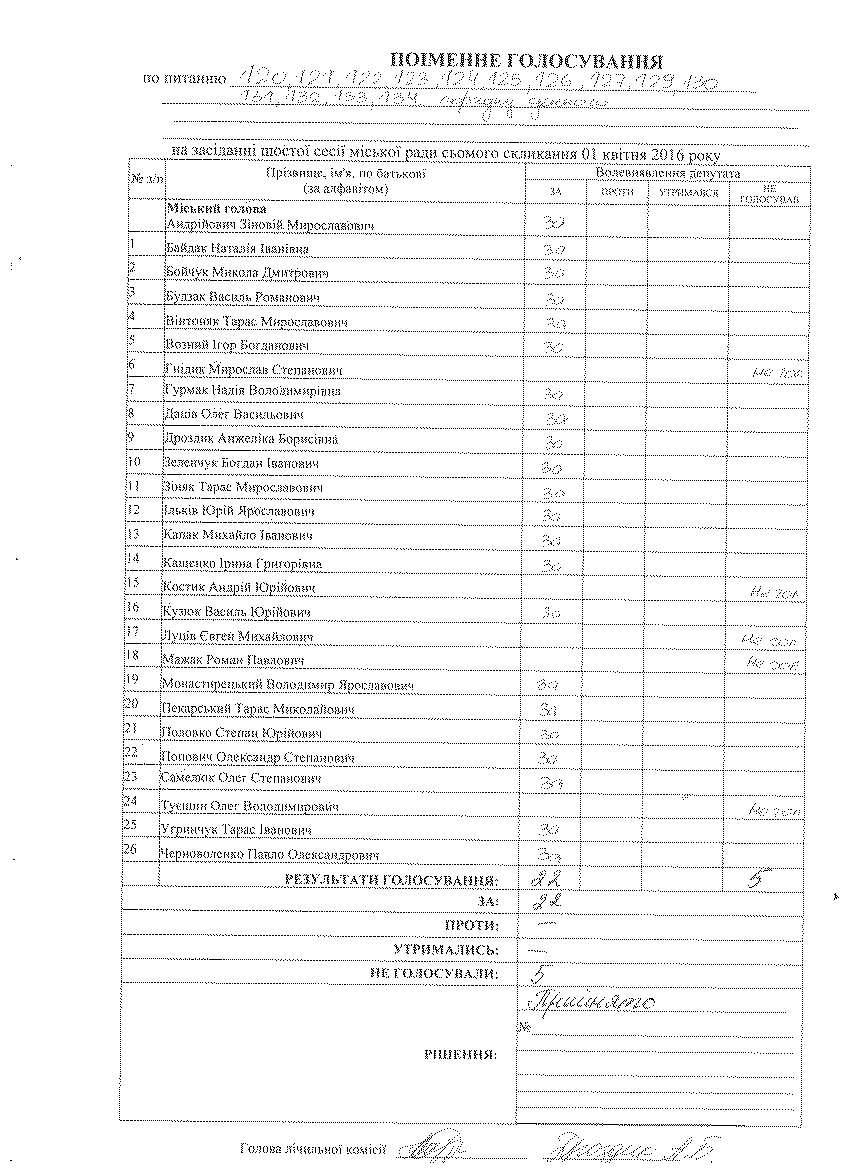 ПОІМЕННЕ ГОЛОСУВАННЯ
по питанню 120, 121, 122, 123, 124, 125, 126, 127, 129, 130
131, 132, 133, 134 порядку денного
на засіданні шостої сесії міської ради сьомого скликання 01 квітня 2016 року
№ з/п Прізвище, ім'я, по батькові (за алфавітом) Волевиявлення депутата
ЗА ПРОТИ УТРИМАВСЯ НЕ ГОЛОСУВАВ
Міський голова
Андрійович Зіновій Мирославович за
1 Байдак Наталія Іванівна за
2 Бойчук Микола Дмитрович за
3 Будзак Василь Романович за
4 Вінтоняк Тарас Мирославович за
5 Возний Ігор Богданович за
6 Гнідик Мирослав Степанович не гол
7 Гурмак Надія Володимирівна за
8 Данів Олег Васильович за
9 Дроздик Анжеліка Борисівна за
10 Зеленчук Богдан Іванович за
11 Зоняк Тарас Мирославович за
12 Ільків Юрій Ярославович за
13 Капак Михайло Іванович за
14 Кащенко Ірина Григорівна за
15 Костик Андрій Юрійович не гол
16 Кузюк Василь Юрійович за
17 Луців Євген Михайлович не гол
18 Мажак Роман Павлович не гол
19 Монастирецький Володимир Ярославович за
20 Пекарський Тарас Миколайович за
21 Половко Степан Юрійович за
22 Попович Олександр Степанович за
23 Самелюк Олег Степанович за
24 Туєшин Олег Володимирович не гол
25 Угринчук Тарас Іванович за
26 Черноволенко Павло Олександрович за
РЕЗУЛЬТАТИ ГОЛОСУВАННЯ: 22 5
ЗА: 22
ПРОТИ: —
УТРИМАЛИСЬ: —
НЕ ГОЛОСУВАЛИ: 5
Прийнято
№
РІШЕННЯ:
Голова лічильної комісії Дроздик А.Б.